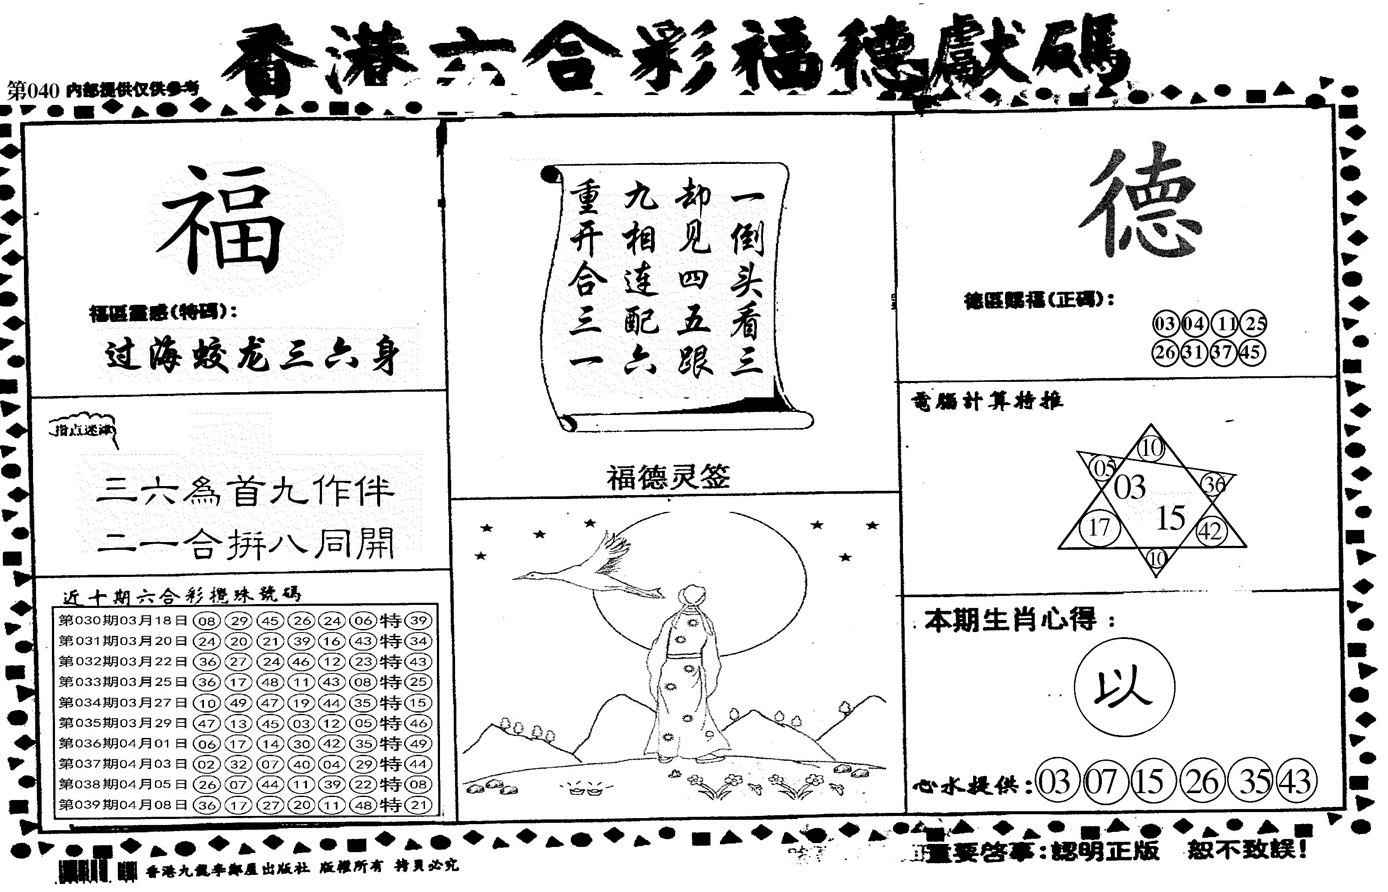 香港六合彩福德獻碼
第040 内部提供仅供参考
福
福區靈感(特碼):
过海蛟龙三六身
指点迷津
三六為首九作伴
二一合拼八同開
近十期六合彩攪珠號碼
第030期03月18日 08 29 45 26 24 06 特 39
第031期03月20日 24 20 21 39 16 43 特 34
第032期03月22日 36 27 24 46 12 23 特 43
第033期03月25日 36 17 48 11 43 08 特 25
第034期03月27日 10 49 47 19 44 35 特 15
第035期03月29日 47 13 45 03 12 05 特 46
第036期04月01日 06 17 14 30 42 35 特 49
第037期04月03日 02 32 07 40 04 29 特 44
第038期04月05日 26 07 44 11 39 22 特 08
第039期04月08日 36 17 27 20 11 48 特 21
一倒头看三
却见四五跟
九相连配六
重开合三一
福德灵签
德
德區賜福(正碼):
03 04 11 25
26 31 37 45
電腦計算特推
10
05
36
03
15
17
42
10
本期生肖心得:
以
心水提供: 03 07 15 26 35 43
香港九龍李鄭屋出版社 版權所有 拷貝必究
重要啓事:認明正版 恕不致誤!